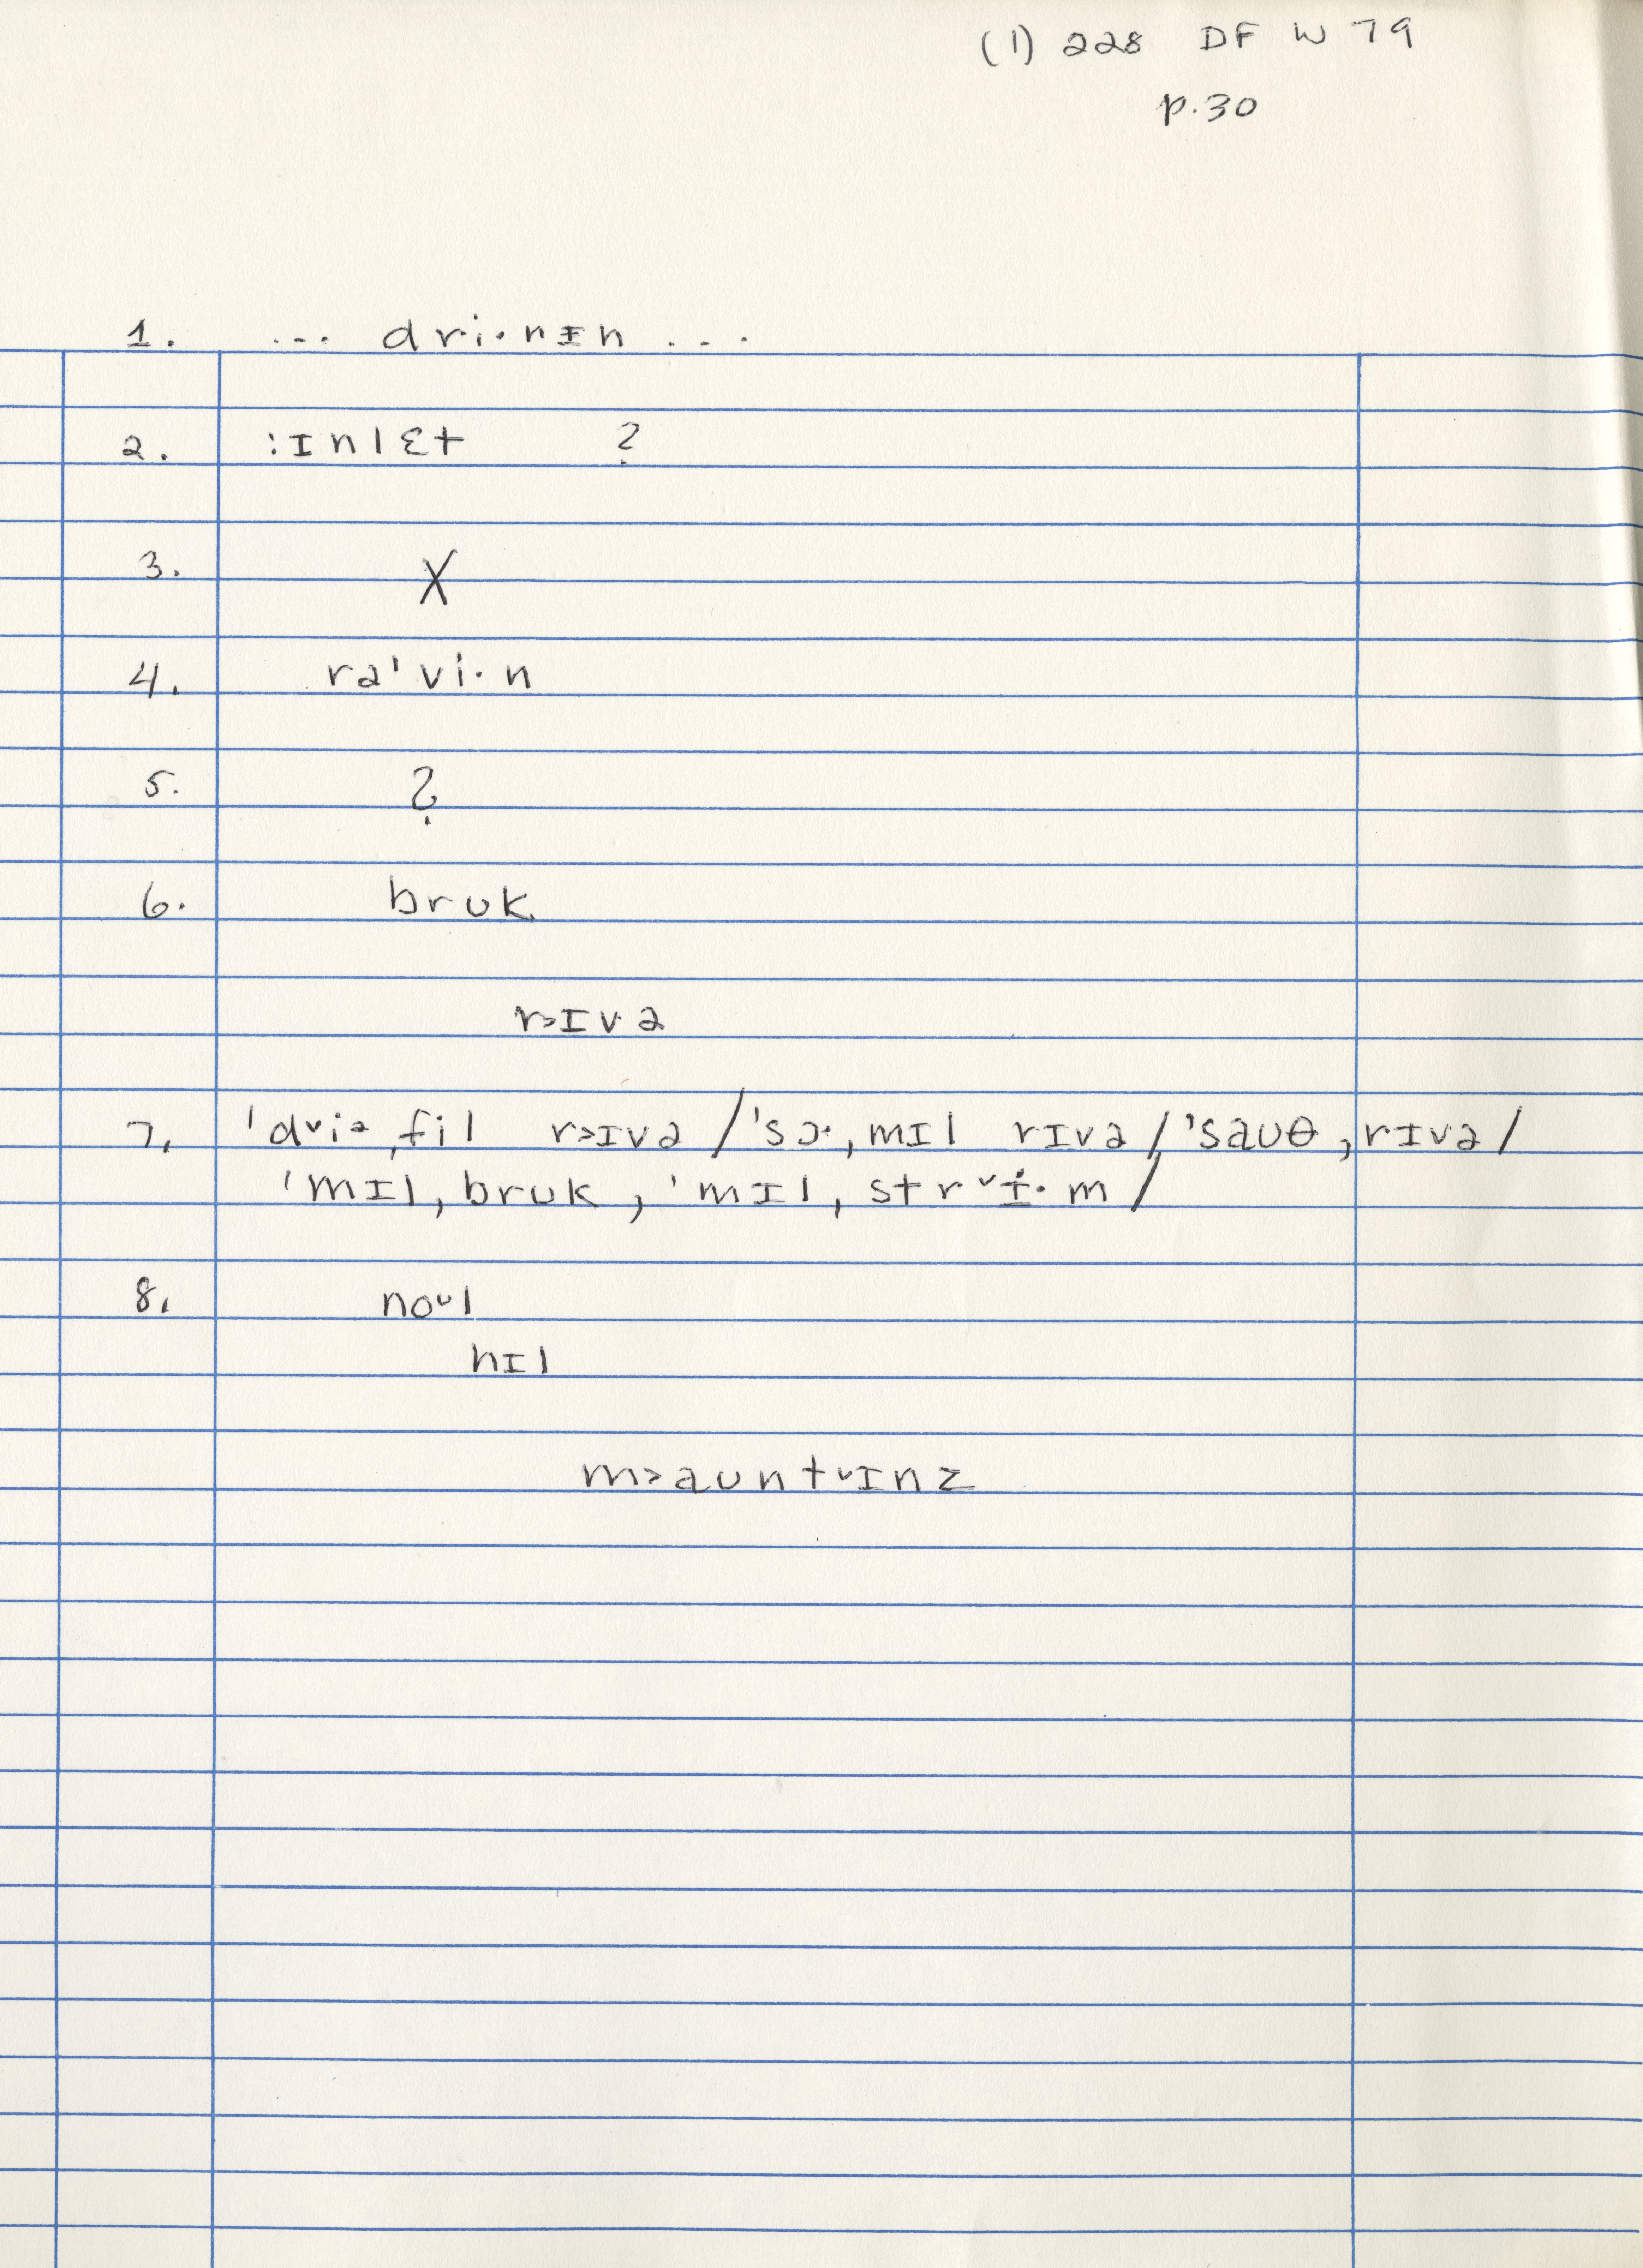 (1) 228 DF W 79
p.30
1. ... dri·nɪn ...
2. :ɪnlɛt ?
3. X
4. rə'vi·n
5. ?
6. brʊk
r>ɪvə
7. 'd˅iə ˌfil r>ɪvə / 'sɔ·ˌmɪl rɪvə / 'saʊθ ˌrɪvə /
'mɪlˌbrʊk, 'mɪlˌstr˅ɨ·m /
8. no˅l
hɪl
m>aʊnt˅ɪnz